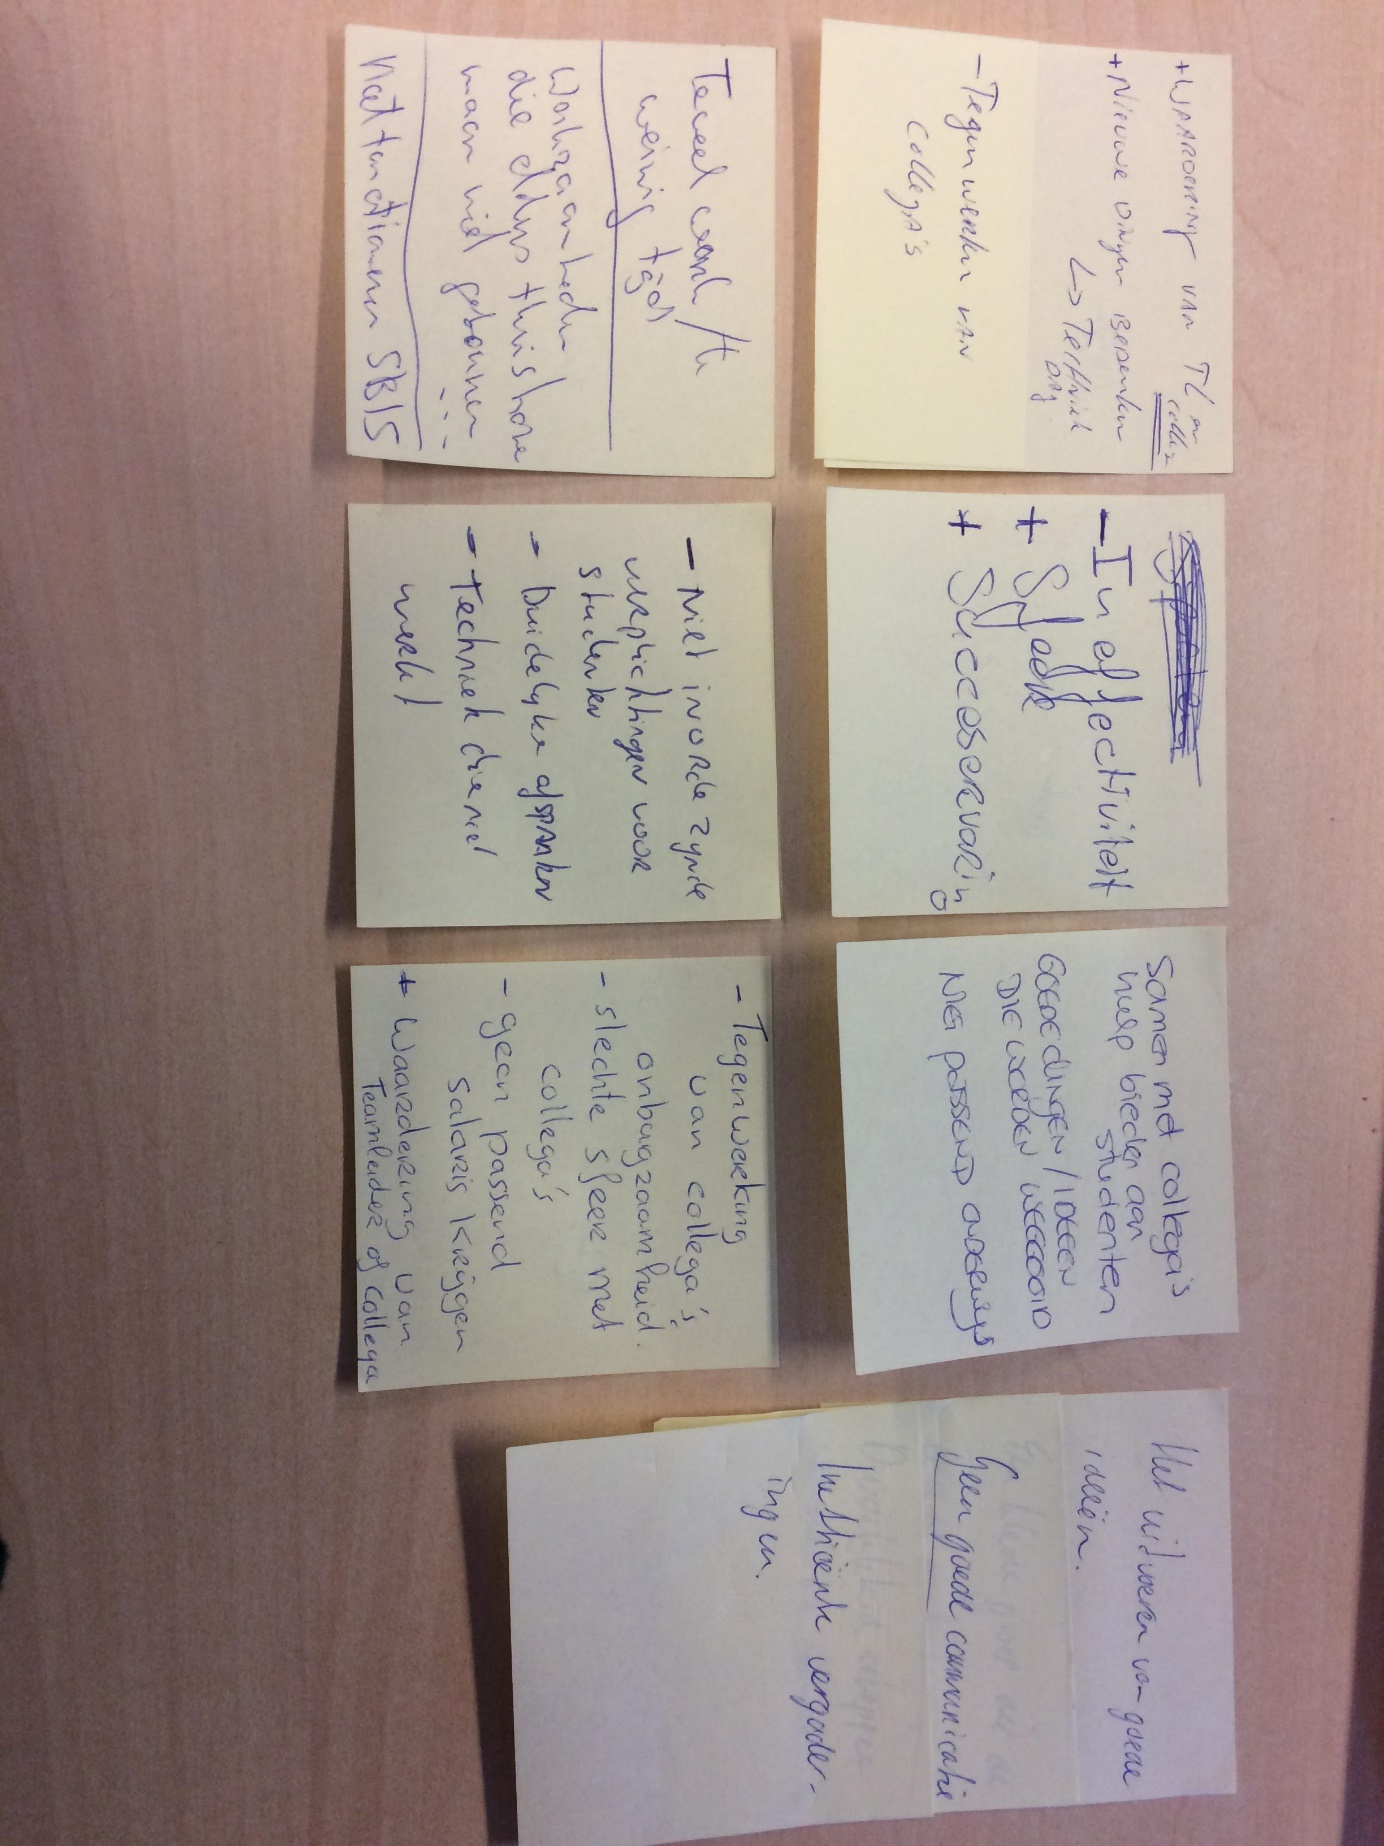 + WAARDERING VAN TL en collega
+ Nieuwe dingen BEDENKEN
↳ Techniek DAG
- Tegenwerken VAN
collegA's
- Ineffectiviteit
+ Sfeer
+ Succeservaring
Samen met collega's
hulp bieden aan
studenten
GOEDE dingen / IDEEEN
DIE WORDEN
Niet passend onderwijs
Het uitvoeren van goede
ideeën.
Geen goede communicatie
Inefficiënte vergader-
ingen.
Teveel werk / te
weinig tijd
Werkzaamheden
die elders thuishoren
maar niet gebeuren
...
Niet functioneren SBIS
- Niet in orde zijnde
verplichtingen voor
studenten
- Duidelijke afspraken
- Techniek die niet
werkt
- Tegenwerking
van collega's
onbuigzaamheid.
- slechte sfeer met
collega's
- geen passend
salaris krijgen
+ Waardering van
Teamleider of collega